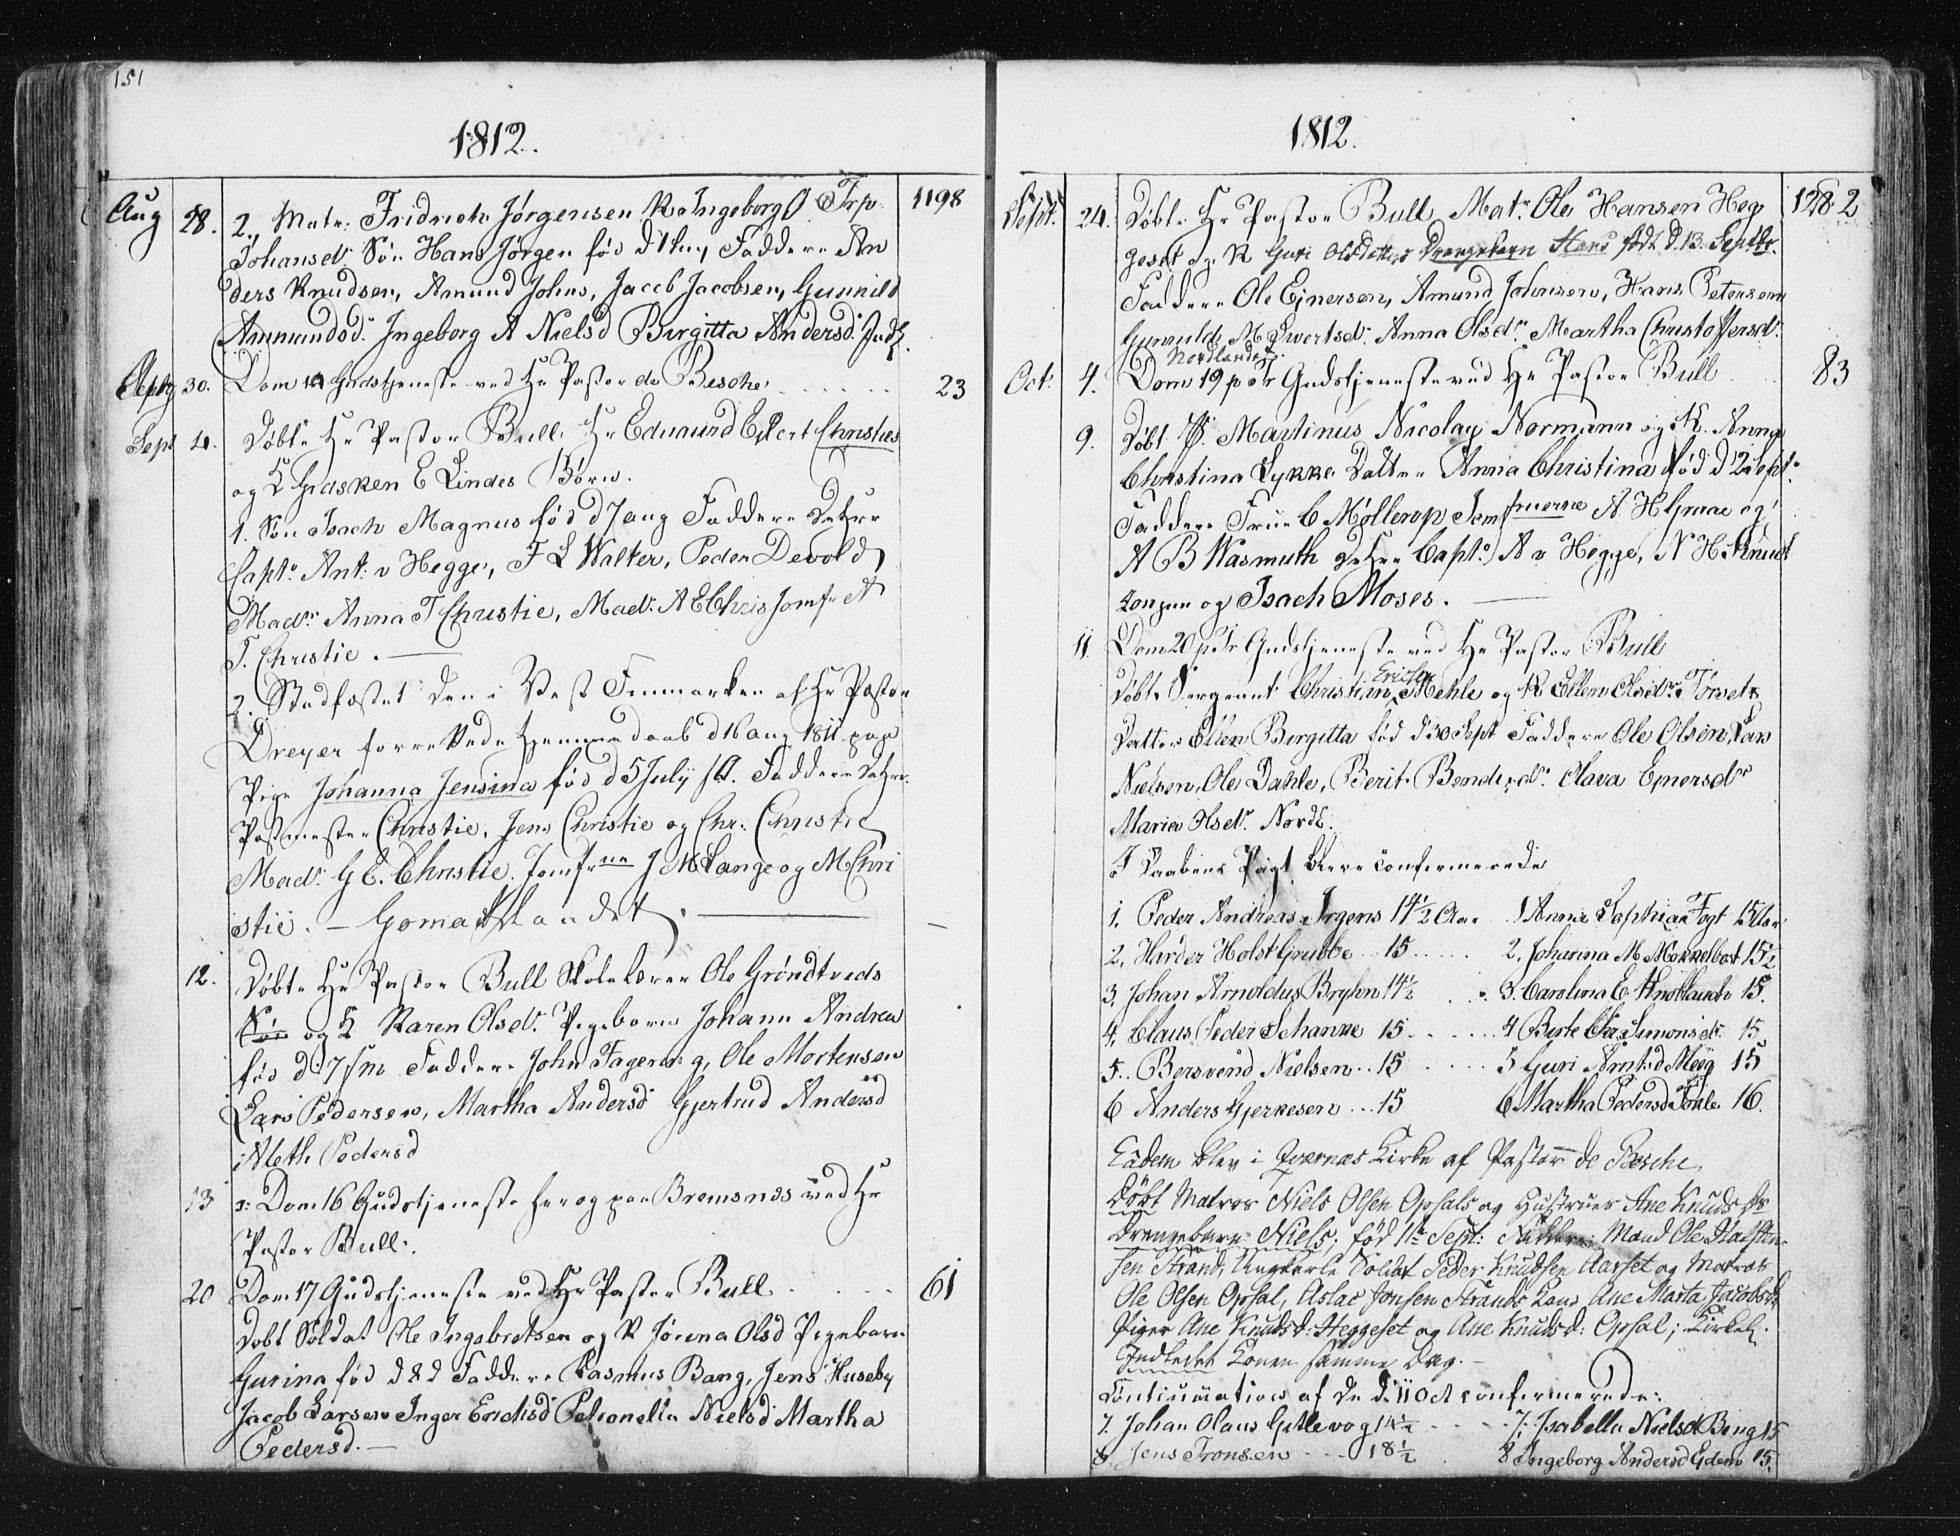 151
1812.
Aug 28. 2., Matr. Fridrich Jørgensen K Ingeborg Trp. 1198
Johansd. Søn Hans Jørgen fød d 1 Aug Faddere An
ders Knudsen, Amund Johns, Jacob Jacobsen, Gunnild
Ammundsd. Ingeborg A Nielsd Birgitta Andersd. Indl.
30. Dom 14 Gudstjeneste ved Hr Pastor de Besche 23
Sept 4. Døbte Hr Pastor Bull, Hr Edmund Eilert Christies
og K Giæsken E Lindes Børn.
1. Søn Isach Magnus fød d 7 aug Faddere DeHrr
Capt. Ant. v Hegge, F L Walter, Peder Devold
Mad. Anna T Christie, Mad. A E Chris Jomfr A
T. Christie.
2. Stadfæstet den i Vest Finmarken af Hr Pastor
Dreyer forrettede Hjemmedaab d 16 aug 1811 paa
Pige Johanna Jensina fød d 5 July s. A. Faddere DeHrr.
Postmester Christie, Jens Christie og Chr. Christie
Mad. G C. Christie. Jomfrue J M Lange og M Chri
stie. –
12. Døbte Hr Pastor Bull Skolelærer Ole Grøndtveds
Søn og K Karen Olsd. Pigebarn Johann Andrea
fød d. 7 s m Faddere John Fager Ole Mortensen
Lars Pedersen, Martha Andersd Gjertrud Andersd
Aleth Pedersd
13 Dom 16 Gudstjeneste her og paa Bremsnes ved Hr
Pastor Bull.
20 Dom 17 Gudstjeneste ved Hr Pastor Bull 61
Døbt Soldat Ole Ingebretsen og K Jørena Olsd Pigebarn
Gurina fød d 8 d Faddere Rasmus Bang, Jens Huseby
Jacob Larsen Inger Erichsd Petronella Nielsd Martha
Pedersd. –
1812.
Sept. 24. Døbte Hr Pastor Bull Matr. Ole Hansen Heg 1282
geset og K Guri Olsdatters Drengebarn Hans født d. 13. Septbr.
Faddere Ole Ejnersen, Amund Johnsen, Hans Petersen
Gunnild M Iwertsd. Anna Olsdr. Martha Christoffersd.
Nordlandet.
Oct. 4. Dom 19 p Tr Gudstjeneste ved Hr Pastor Bull 83
9. Døbt Martinus Nicolay Normann og K. Anna
Christina Lykke Datter Anna Christina fød d 2 Sept.
Faddere Frue C Møllerop Jomfruerne A H
A B Wasmuth DeHrr Capt. A v Hegge, N H Knud
tzon og Isach Moses.
11. Dom 20 p Tr Gudstjeneste ved Hr Pastor Bull
Døbt Sergeant Christian Ericsen Mehle og K Ellen Olsdr.
Datter Ellen Birgitta fød d 30 Sept Faddere Ole Olsen, Lars
Nielsen, Ole Dahle, Berit Bendixd. Olava Ejnersdr
Maria Olsd. Nordl.
I Daabens Pagt bleve confirmerede
1. Peder Andreas Irgens 14 1/2 Aar 1 Anna Sophia Fogt 15 Aar
2. Harder Holst Grubbe 15 2. Johanna M Mokkelbost 15 1/2
3. Johan Arnoldus Bryhn 14 1/2 3. Carolina E. Knoblauch 15.
4. Claus Peder Schanke 15 4 Berte Chr. Simonsd. 15
5. Bersvend Nielsen 15 5 Guri Arntsd Meeg 15
6 Anders Gjerkesen 15 6 Martha Pedersd 16.
Eadem blev i Qvernæs Kirke af Pastor de Besche
Døbt Matros Niels Olsen Opsals og Hustrues Ane Knudsdr
Drengebarn Niels; fød 11te Sept: Faddere: Mand Ole Halsten
sen Strand, Ungkarle Soldat Peder Knudsen Aarset og Matros
Ole Olsen Opsal, Aslac Jonsen Strands Kone Ane Marta Jacobsdr
Piger Ane Knudsd: Heggeset og Ane Knudsd: Opsal; Kirkel.
Indledet Konen samme Dag. –
Continuation af de d. 11 Oct confirmerede:
7. Johan Olaus Getlevog 14 1/2 7. Isabella Nielsd Beng 15
8 Jens Tronsen 18 1/2 8 Ingeborg Andersd Edem 15.